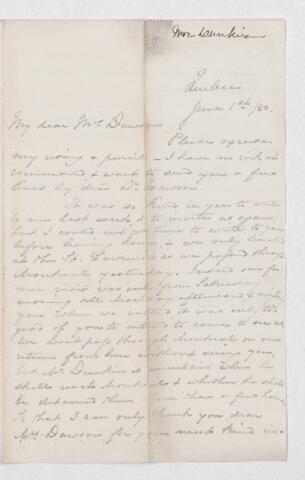 Mrs Dunkin
Quebec
June 1st /80.
My dear Mrs Dawson
Please excuse
my using a pencil — I have no ink at
command & want to send you a few
lines by dear Dr Dawson.
It was so kind in you to write
to me last week, & to invite us again,
but I could not get time to write to you
before leaving home, & we only
at the St. Lawrence as we passed through
Montreal yesterday. Indeed our for-
mer visit was only from Saturday
morning till Monday afternoon, &
you when we called it was only too
good of you to intend to come to see us,
We wont pass through Montreal on our
return from here without seeing you,
but Mr Dunkin is uncertain when he
shall reach Montreal & whether he shall
be detained there more than a few hours,
so that I can only thank you dear
Mrs Dawson, for your most kind in-